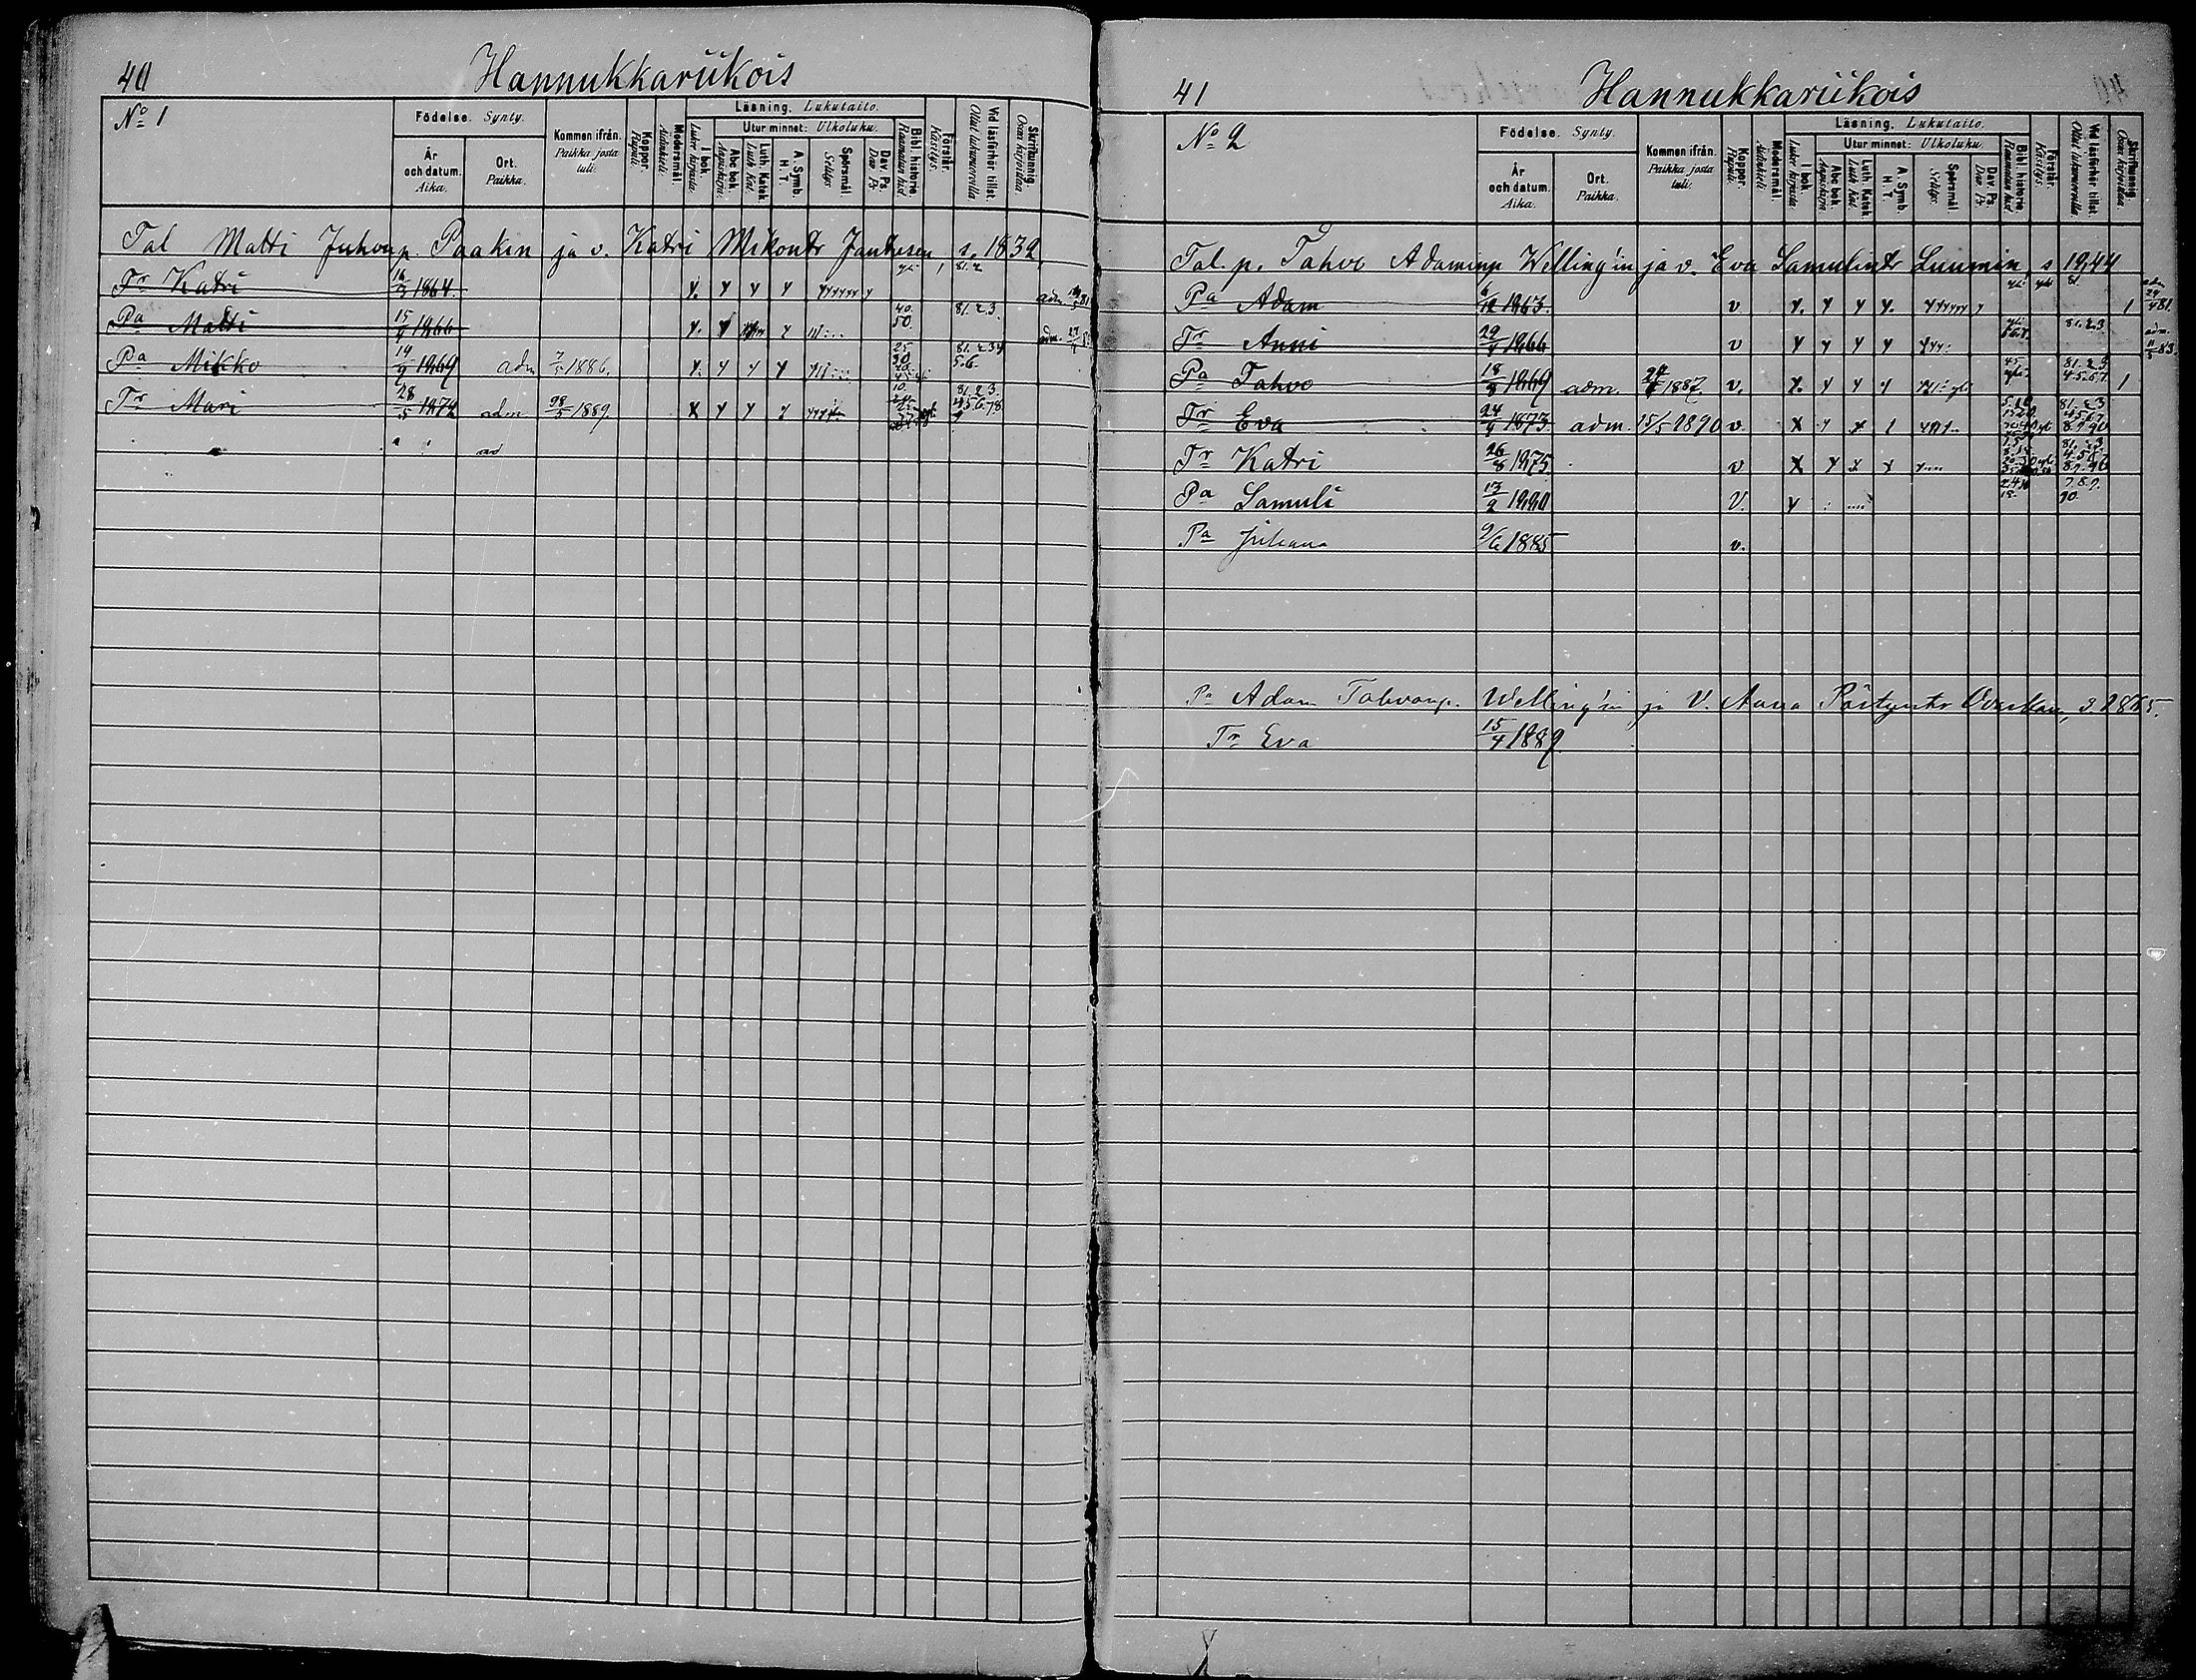 40 Hannukkariikois
No 1
Födelse. Synty.
År och datum. Aika.
Ort. Paikka.
Kommen ifrån. Paikka josta tuli.
Koppor. Rupuli.
Modersmål. Äidinkieli.
Läsning. Lukutaito.
I bok. Lukee kirjasta.
Utur minnet: Ulkoluku.
Abc bok. Aapiskirja.
Luth. Katek. Luth. Kat.
A. Symb. H. T.
Spörsmål. Selitys.
Dav. Ps. Dav. Ps.
Bibl. historie. Raamatun hist.
Förstår. Käsitys.
Vid läsförhör tillst. Ollut lukuvuoroilla.
Skrifkunnig. Osaa kirjoittaa.
Tal Matti Juhonp. Paakin ja v. Katri Mikontr s. 1839
Tr Katri 16/3 1864. y. y y y yyyyy y 81. 2
Pa Matti 15/4 1866 40. 50. 81. 2 3.
Pa Mikko 14/9 1869 adm 7/5 1886. y. y y y 25 81. 2 3 4 5. 6.
Tr Mari 28/5 1872 adm 28/5 1889. x y y y 10. 81. 2 3. 4 5 6. 7 8. 9
41 Hannukkariikois
No 2
Födelse. Synty.
År och datum. Aika.
Ort. Paikka.
Kommen ifrån. Paikka josta tuli.
Koppor. Rupuli.
Modersmål. Äidinkieli.
Läsning. Lukutaito.
I bok. Lukee kirjasta.
Utur minnet: Ulkoluku.
Abc bok. Aapiskirja.
Luth. Katek. Luth. Kat.
A. Symb. H. T.
Spörsmål. Selitys.
Dav. Ps. Dav. Ps.
Bibl. historie. Raamatun hist.
Förstår. Käsitys.
Vid läsförhör tillst. Ollut lukuvuoroilla.
Skrifkunnig. Osaa kirjoittaa.
Tal. p. Tahvo Adaminp Welling'in ja v. Eva Samulintr Luumin, s 1844
Pa Adam 1863. v y. y y y. yyyyy y 81. 1 adm 24/4 81.
Tr Anni 29/4 1866 v y y y y yyy: 81. 2 3. adm. 11/5 83.
Pa Tahvo 18/8 1869 adm. 1887. v. y. y y y 81. 2 3 4. 5. 6. 7. 1
Tr Eva 24/4 1873 adm. 15/5 1890 v. x y x 81. 2 3 4. 5. 6. 7. 8. 9. 90
Tr Katri 26/8 1875 v x y x y y.... 81. 2 3 4. 5. 6. 7. 8. 9. 90
Pa Samuli 13/2 1880 V. y : .... 7. 8. 9. 90.
Pa Juhana 9/6 1885 v.
Pa Adam Tahvonp. Welling'in ja V. Anna s. 1865.
Tr Eva 15/4 1889